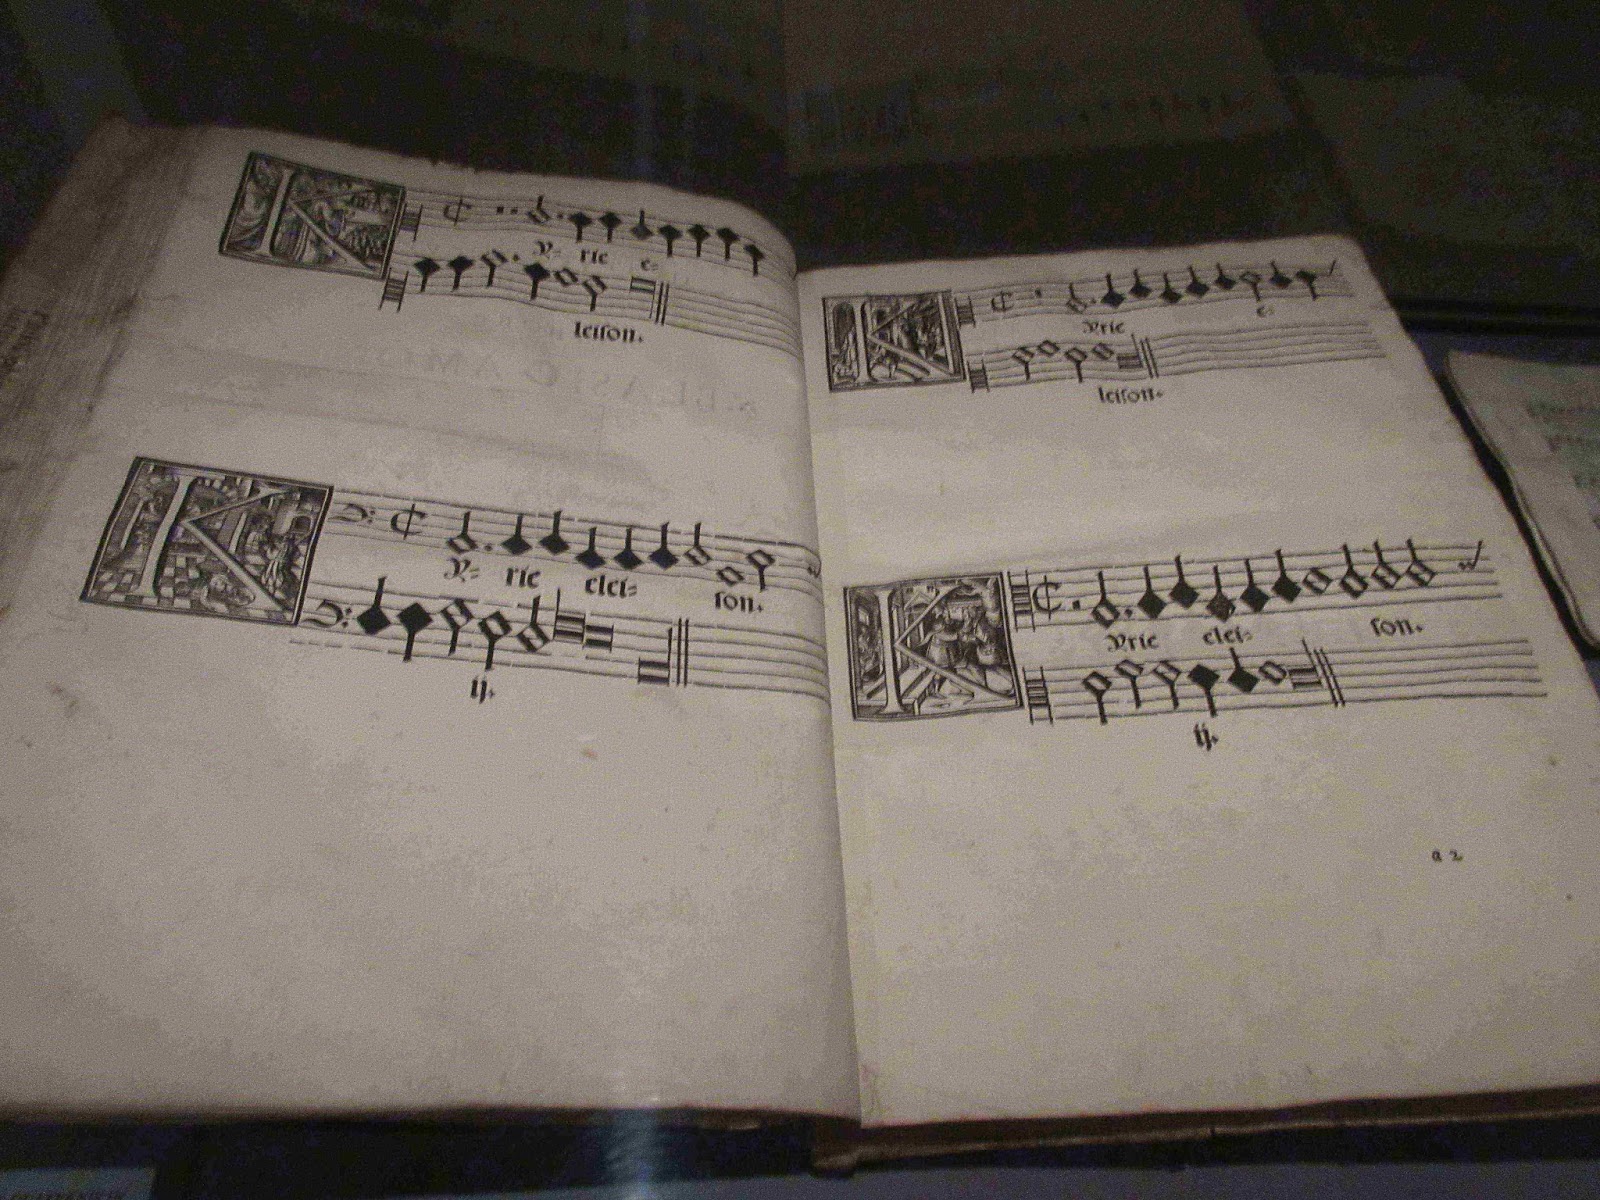 K
Y= rie e=
leison.
K
Y= rie elei=
son.
ij.
K
Yrie e=
leison.
K
Yrie elei=
son.
ij.
a 2